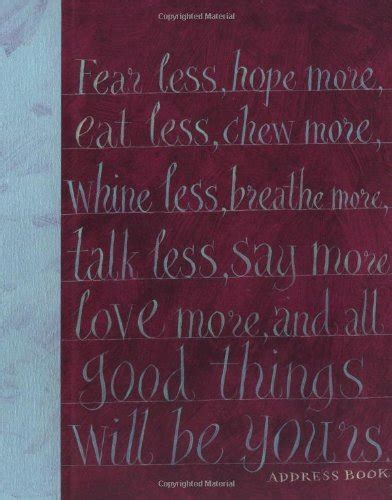 Fear less, hope more,
eat less, chew more,
whine less, breathe more,
talk less, say more
love more, and all
good things
will be yours.
ADDRESS BOOK
Copyrighted Material
Copyrighted Material